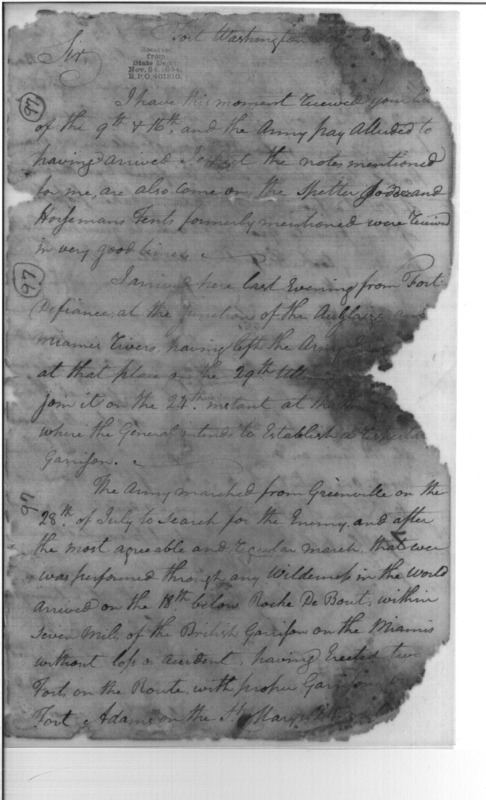 Fort Washington
Sir,
Received
from
State Dept.
Nov. 24, 1894.
R.P.O. 401810.
97
I have this moment received your
of the 9th & 16th, and the Army pay alluded to
having arrived the notes mentioned
for me, are also come on the Spelter and
Horsemans Tents formerly mentioned were received
in very good time.
97
I arrived here last Evening from Fort
Defiance, at the junction of the Auglaize and
Miamis Rivers, having left the Army
at that place on the 29th Ult.
join it on the 24th instant at the
where the General intends to Establish a
Garrison.
97
The Army marched from Greenville on the
28th of July to search for the Enemy, and after
the most agreeable and regular march, that ever
was performed through any Wilderness in the World
arrived on the 18th below Roche De Bout, within
seven Mile of the British Garrison on the Miamis
without loss or accident, having Erected two
Forts on the Route, with proper Garrisons
Fort Adams on the St. Marys